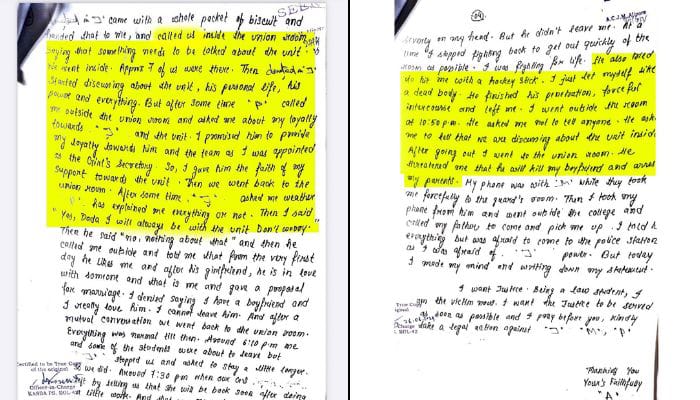 came with a whole packet of biscuit and
handed that to me, and called us inside the union room.
saying that something needs to be talked about the unit. so
we went inside. Approx 7 of us were there. Then
started discussing about the unit, his personal life, his
power and everything. But after some time "P" called
me outside the union room and asked me about my loyalty
towards "J" and the unit. I promised him to provide
my loyalty towards him and the team as I was appointed
as the Girl's Secretary. So, I gave him the faith of my
support towards the unit. Then we went back to the
union room. After some time, "J" asked me weather
has explained me everything or not. Then I said
"Yes, Dada I will always be with the unit Don't worry."
Then he said "no, nothing about that" and then he
called me outside and told me that from the very first
day he likes me and after his girlfriend, he is in love
with someone and that is me and gave a proposal
for marriage. I denied saying I have a boyfriend and
I really love him. I cannot leave him. And after a
mutual conversation we went back to the union room.
Everything was normal till then. Around 6:10 p.m me
and some of the students were about to leave but
stopped us and asked to stay a little longer.
so we did. Around 7:30 pm when our
left by telling us that she will be back soon after doing
little work. And that
Certified to be True Copy
of the original
Officer-in-Charge
KASBA PS, KOL-42
(04)
A.C.J.M. Alipore
severly on my head. But he didn't leave me. At a
time I stopped fighting back to get out quickly of the
room as possible. I was fighting for life. He also tried
to hit me with a hockey stick. I just let myself like
a dead body. He finished his penetration, forceful
intercourse and left me. I went outside the room
at 10:50 p.m. He asked me not to tell anyone. He ask
me to tell that we are discussing about the unit inside
After going out I went to the union room. He
threatened me that he will kill my boyfriend and arrest
my parents. My phone was with "M" while they took
me forcefully to the guard's room. Then I took my
phone from him and went outside the college and
called my father to come and pick me up. I told
everything but was afraid to come to the police station
as I was afraid of "J" power. But today
I made my mind and writing down my statement.
I want Justice. Being a law student, I
am the victim now. I want the Justice to be served
as soon as possible and I pray before you, kindly
take a legal action against "J", "M", "P"
True Copy
original
Charge
KOL-42
Thanking You
Your's Faithfully
"A"